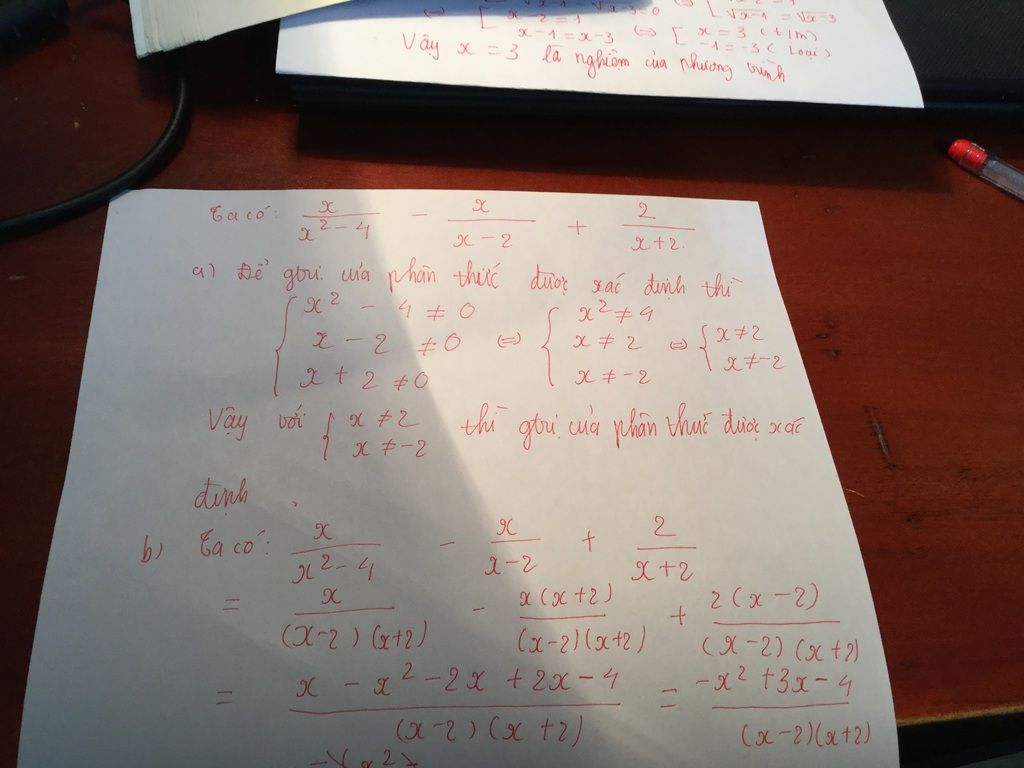 ⇔ [ √x-1 - √x-3=0 ⇔ [ √x-1 = √x-3
x-2=1
x-1=x-3 ⇔ [ x=3 (t/m)
-1=-3 (loại)
Vậy x=3 là nghiệm của phương trình
Ta có: x/(x²-4) - x/(x-2) + 2/(x+2)
a) Để gtrị của phân thức được xác định thì
{ x² - 4 ≠ 0 { x² ≠ 4
x - 2 ≠ 0 ⇔ x ≠ 2 ⇔ { x ≠ 2
x + 2 ≠ 0 x ≠ -2 x ≠ -2
Vậy với { x ≠ 2 thì gtrị của phân thức được xác
x ≠ -2
định.
b) Ta có: x/(x²-4) - x/(x-2) + 2/(x+2)
= x/((x-2)(x+2)) - x(x+2)/((x-2)(x+2)) + 2(x-2)/((x-2)(x+2))
= (x - x² - 2x + 2x - 4)/((x-2)(x+2)) = (-x² + 3x - 4)/((x-2)(x+2))